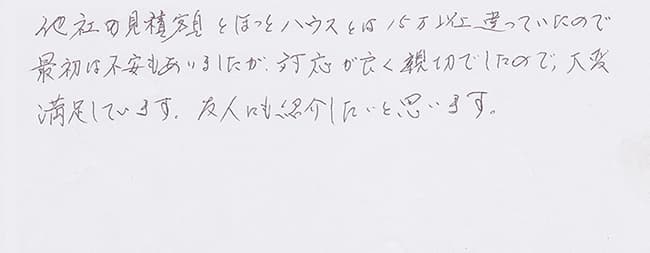 他社の見積額とほっとハウスとは15万以上違っていたので
最初は不安もありましたが、対応が良く親切でしたので、大変
満足しています。友人にも紹介したいと思います。